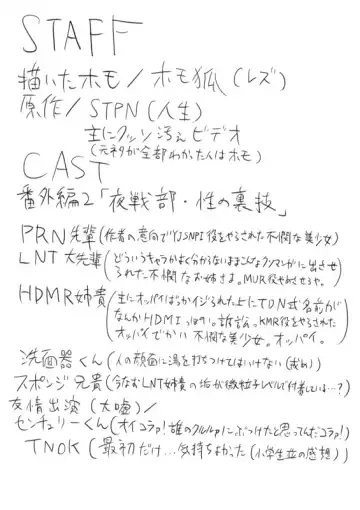 STAFF
描いたホモ/ホモ狐(レズ)
原作/STPN(人生)
主にクッソ汚えビデオ
(元ネタが全部わかった人はホモ)
CAST
番外編2「夜戦部・性の裏技」
PRN先輩(作者の意向でYJSNPI役をやらされた不憫な美少女)
LNT大先輩(どういうキャラかよく分からないままこんなクソマンガに出させ
られた不憫なお姉さま。MUR役もやめさせろや。
HDMR姉貴(主にオッパイばっかイジられた上にTDN式名前が
なんかHDMIっぽい。訴訟。KMR役をやらされた
オッパイでかい不憫な美少女。オッパイ。
洗面器くん(人の顔面に湯を打ちつけてはいけない(戒め)
スポンジ兄貴(今なおLNT姉貴の垢が微粒子レベルで付着している…?)
友情出演(大嘘)/
センチュリーくん(オイコラァ!誰のクルルァにぶつけたと思ってんだコラァ!)
TNOK(最初だけ…気持ちよかった(小学生並の感想))